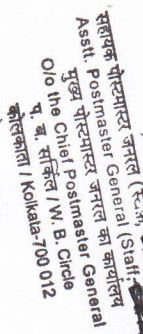 सहायक पोस्टमास्टर जनरल (स्टाफ,
Asstt. Postmaster General (Staff
मुख्य पोस्टमास्टर जनरल का कार्यालय
O/o the Chief Postmaster General
प. बं. सर्किल / W. B. Circle
कोलकाता / Kolkata-700 012